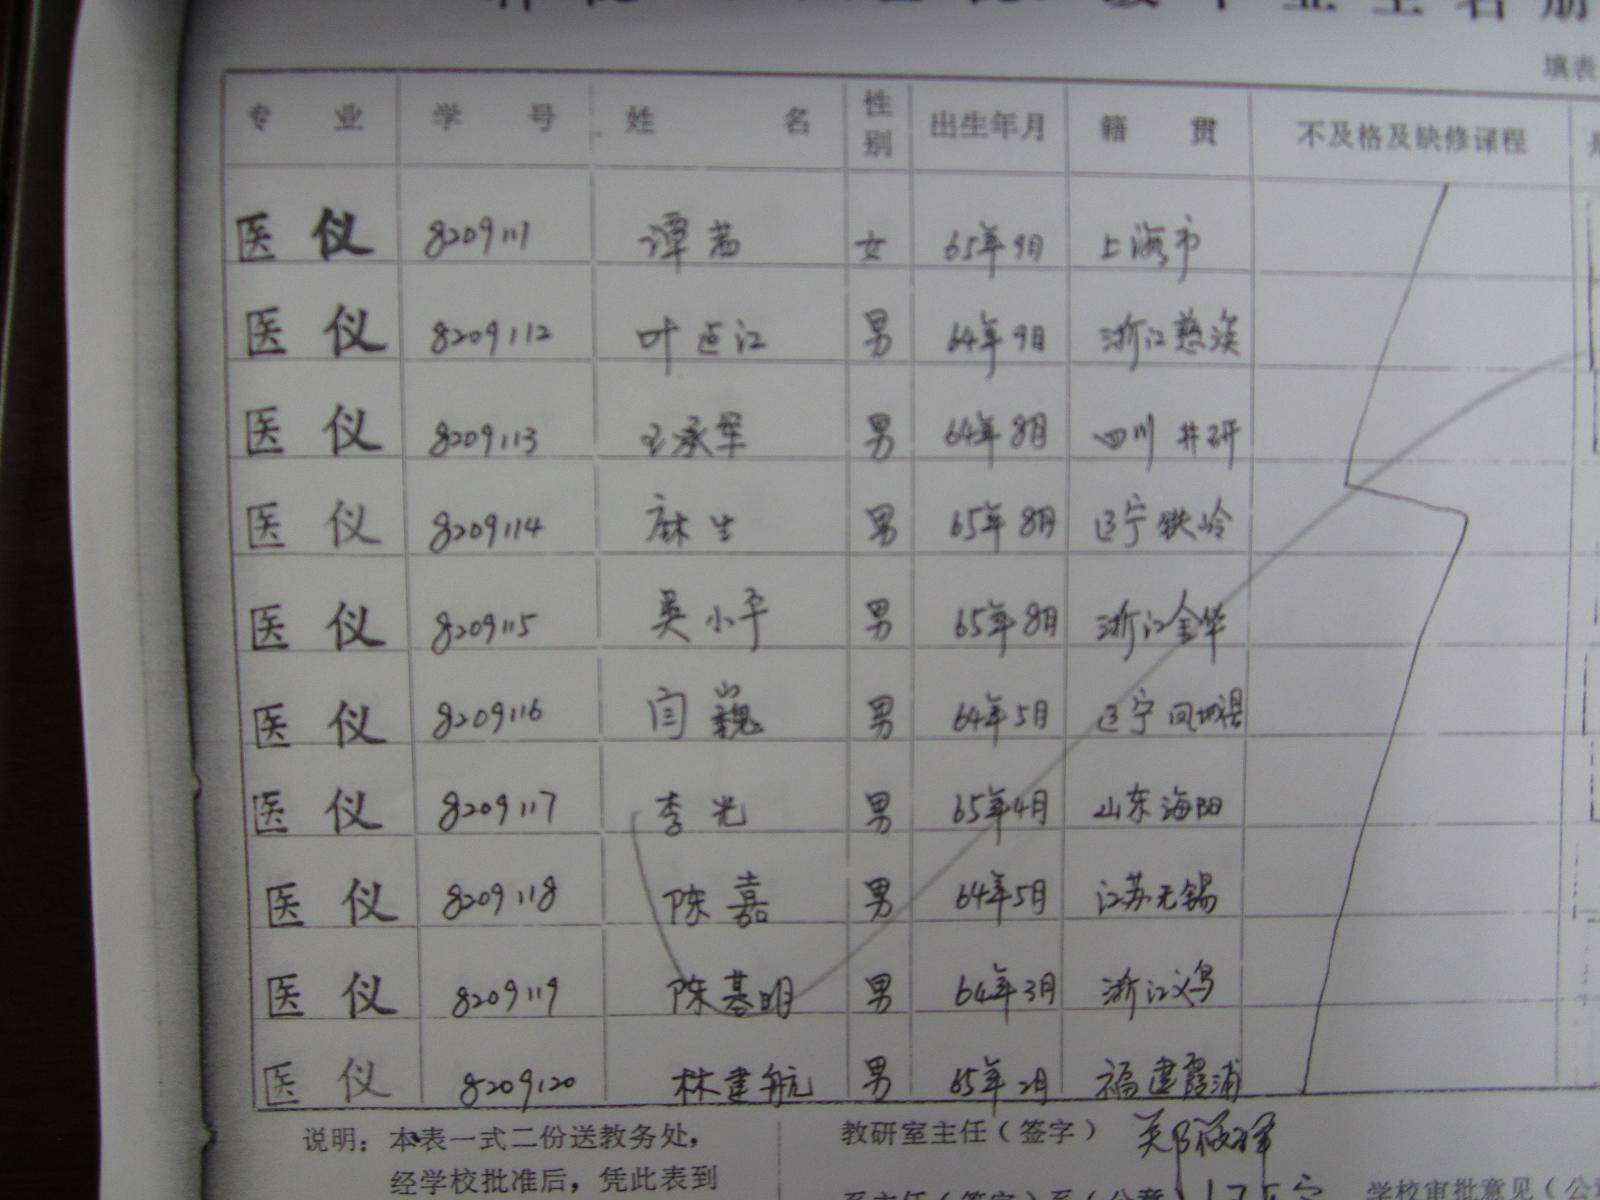 毕业生名册
填表
专业 学号 姓名 性别 出生年月 籍贯 不及格及缺修课程
医仪 8209111 谭茗 女 65年9月 上海市
医仪 8209112 叶近江 男 64年9月 浙江慈溪
医仪 8209113 王承军 男 64年8月 四川井研
医仪 8209114 麻生 男 65年8月 辽宁铁岭
医仪 8209115 吴小平 男 65年8月 浙江金华
医仪 8209116 闫巍 男 64年5月 辽宁凤城县
医仪 8209117 李光 男 65年4月 山东海阳
医仪 8209118 陈嘉 男 64年5月 江苏无锡
医仪 8209119 陈基明 男 64年3月 浙江义乌
医仪 8209120 林建航 男 65年2月 福建霞浦
说明：本表一式二份送教务处， 教研室主任（签字）
经学校批准后，凭此表到 系主任（签字）系（公章） 学校审批意见（公